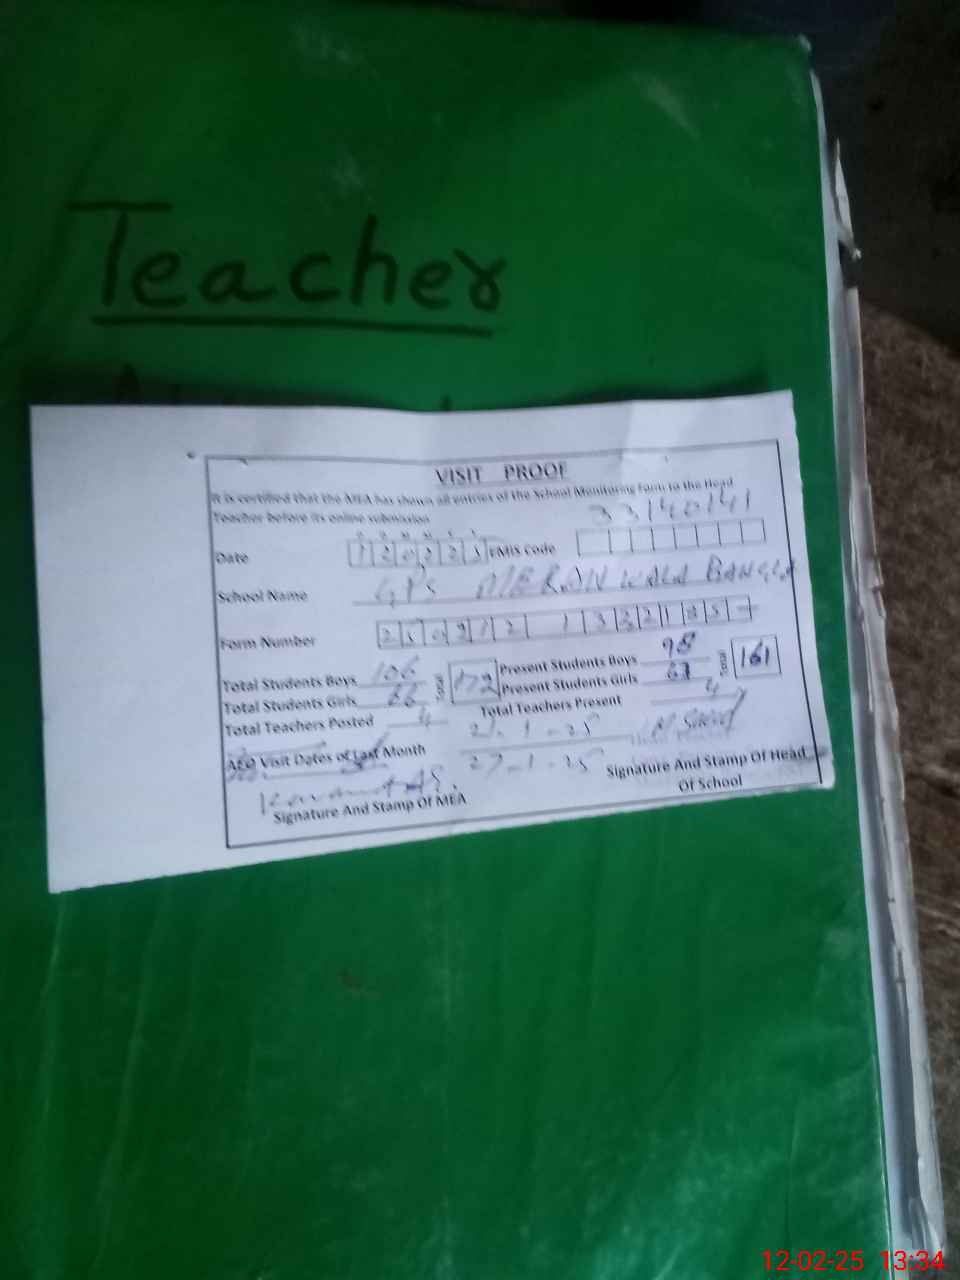 Teacher
VISIT PROOF
It is certified that the MEA has shown all entries of the School Monitoring Form to the Head
Teacher before its online submission
33140141
Date 120225 EMIS Code
School Name GPS MERAN WALA BANGLA
Form Number
Total Students Boys 106 Total 172 Present Students Boys 98 Total 161
Total Students Girls 66 Present Students Girls 63
Total Teachers Posted 4 Total Teachers Present 4
AEO Visit Dates of Last Month 21.1.25
27.1.25
Signature And Stamp Of MEA
Signature And Stamp Of Head
Of School
12-02-25 13:34